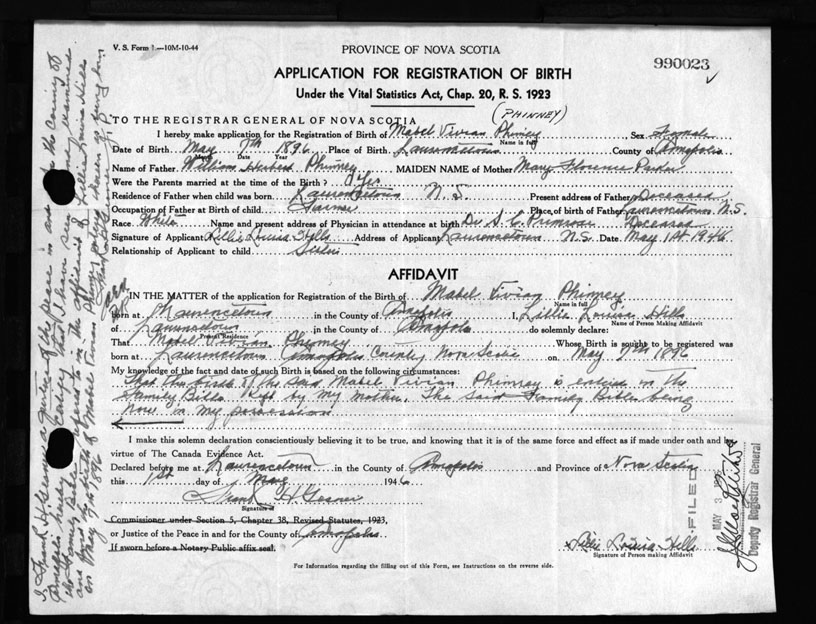 V. S. Form 1—10M-10-44
PROVINCE OF NOVA SCOTIA
990023
APPLICATION FOR REGISTRATION OF BIRTH
Under the Vital Statistics Act, Chap. 20, R. S. 1923
(PHINNEY)
TO THE REGISTRAR GENERAL OF NOVA SCOTIA
I hereby make application for the Registration of Birth of Mabel Vivian Phinney, Sex Female
Name in full
Date of Birth May 7th 1896 Place of Birth Lawrencetown County of Annapolis
Month Date Year
Name of Father William Herbert Phinney MAIDEN NAME of Mother Mary Florence
Were the Parents married at the time of the Birth? Yes
Residence of Father when child was born Lawrencetown N.S. Present address of Father Deceased
Occupation of Father at Birth of child Farmer Place of birth of Father Lawrencetown N.S.
Race White Name and present address of Physician in attendance at birth Dr. S. C. Primrose Deceased
Signature of Applicant Lillie Louisa Hills Address of Applicant Lawrencetown N.S. Date May 1st 1946
Relationship of Applicant to child Sister
AFFIDAVIT
IN THE MATTER of the application for Registration of the Birth of Mabel Vivian Phinney
Name in full
born at Lawrencetown in the County of Annapolis I, Lillie Louisa Hills
Name of Person Making Affidavit
of Lawrencetown in the County of Annapolis do solemnly declare:
Present Residence
That Mabel Vivian Phinney Whose birth is sought to be registered was
born at Lawrencetown Annapolis County Nova Scotia on May 7th 1896
My knowledge of the fact and date of such Birth is based on the following circumstances:
That the birth of the said Mabel Vivian Phinney is entered in the
Family Bible kept by my mother. The said Family Bible being
now in my possession
I make this solemn declaration conscientiously believing it to be true, and knowing that it is of the same force and effect as if made under oath and by
virtue of The Canada Evidence Act.
Declared before me at Lawrencetown in the County of Annapolis and Province of Nova Scotia
this 1st day of May 1946
Frank H Gesner
Signature of
Commissioner under Section 5, Chapter 38, Revised Statutes, 1923,
or Justice of the Peace in and for the County of Annapolis
If sworn before a Notary Public affix seal.
Lillie Louisa Hills
Signature of Person making Affidavit
For Information regarding the filling out of this Form, see Instructions on the reverse side.
I Frank H Gesner a justice of the peace in and for the County of
Annapolis hereby certify that I have seen and examined
the family Bible referred to in the affidavit of Lillie Louisa Hills
and found the birth of Mabel Vivian Phinney entered therein as being born
on May 7th 1896
FILED
MAY 3
Deputy Registrar General